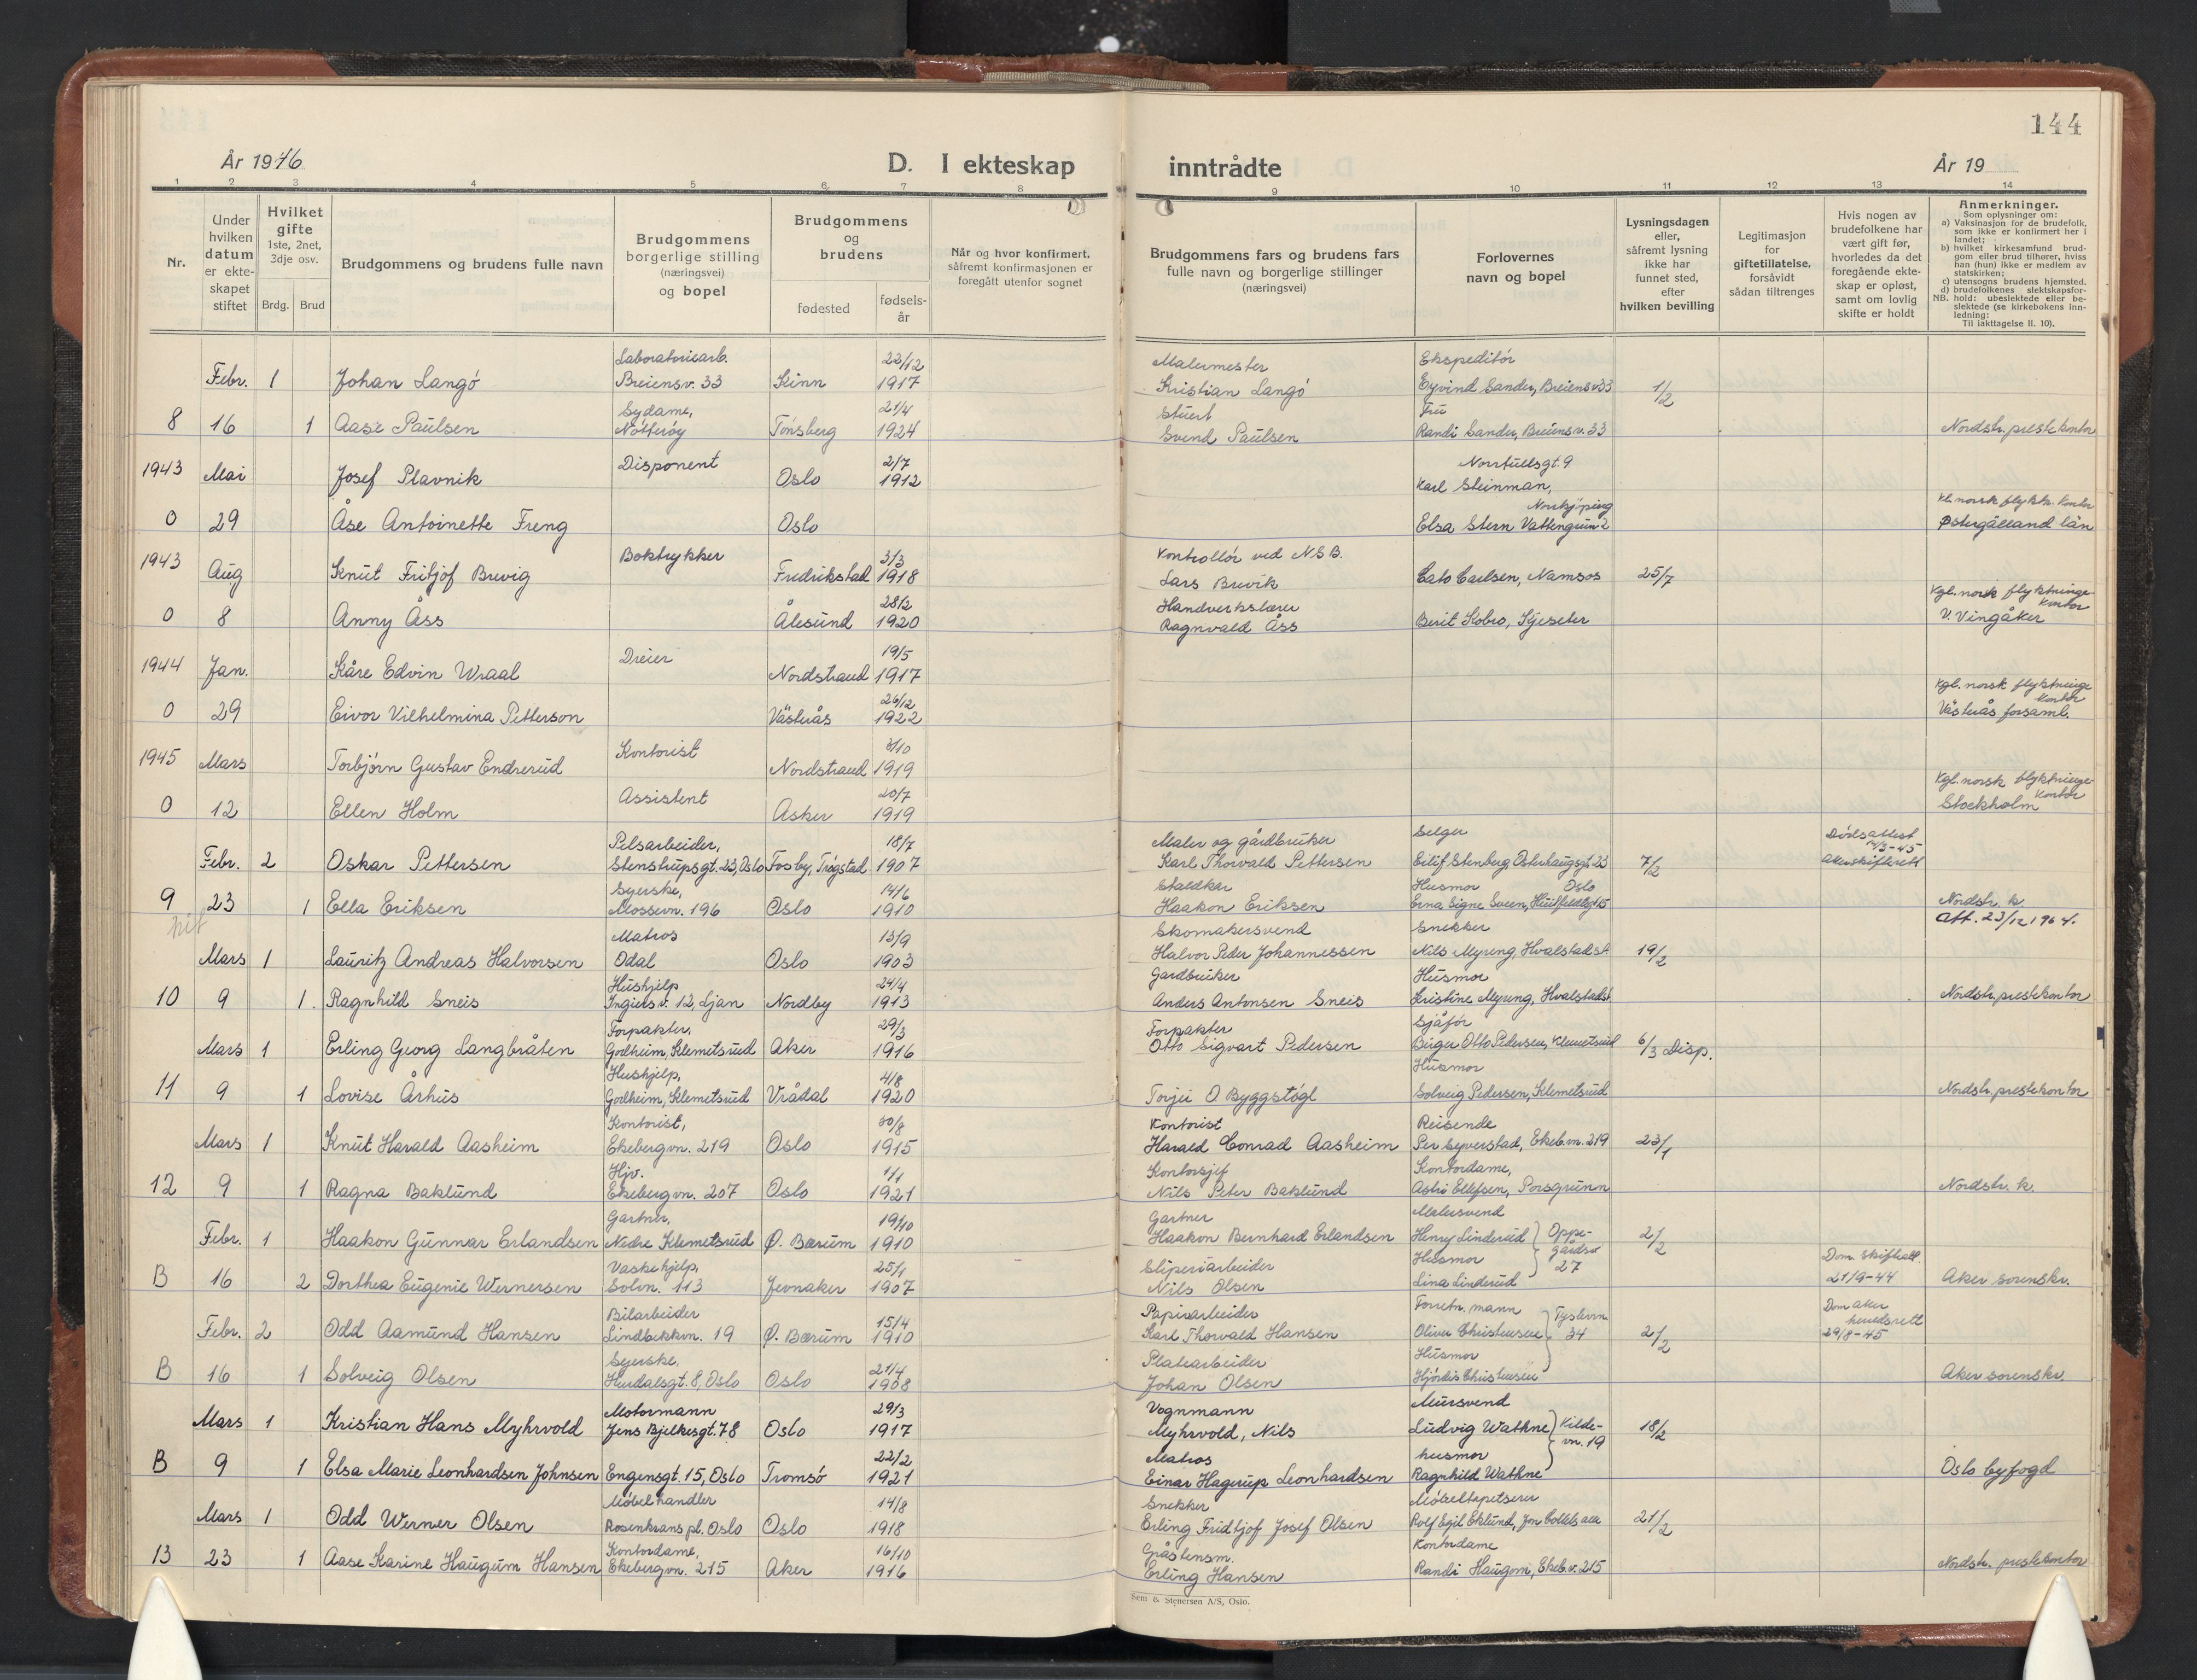 144
År 1946
D. I ekteskap inntrådte
År 19
1 2 3 4 5 6 7 8 9 10 11 12 13 14
Nr.
Under hvilken datum er ekte-skapet stiftet
Hvilket gifte 1ste, 2net, 3dje osv.
Brdg. Brud
Brudgommens og brudens fulle navn
Brudgommens borgerlige stilling (næringsvei) og bopel
Brudgommens og brudens
fødested
fødsels-år
Når og hvor konfirmert, såfremt konfirmasjonen er foregått utenfor sognet
Brudgommens fars og brudens fars fulle navn og borgerlige stillinger (næringsvei)
Forlovernes navn og bopel
Lysningsdagen eller, såfremt lysning ikke har funnet sted, efter hvilken bevilling
Legitimasjon for giftetillatelse, forsåvidt sådan tiltrenges
Hvis nogen av brudefolkene har vært gift før, hvorledes da det foregående ekte-skap er opløst, samt om lovlig skifte er holdt
Anmerkninger.
Som oplysninger om:
a) Vaksinasjon for de brudefolk, som ikke er konfirmert her i landet;
b) hvilket kirkesamfund brud-gom eller brud tilhører, hviss han (hun) ikke er medlem av statskirken;
c) utensogns brudens hjemsted.
d) brudefolkenes slektskapsfor-hold: ubeslektede eller be-slektede (se kirkebokens inn-ledning:
NB. Til iakttagelse II. 10).
Laboratoriearb. 22/12 Malermester Ekspeditør
Febr. 1 Johan Langö Breiensv. 33 Kinn 1917 Kristian Langö Eyvind Sander, Breiensv 33 1/2
Sydame, 21/4 Stuert Fru
8 16 1 Aase Paulsen Nötteröy Tönsberg 1924 Svend Paulsen Randi Sander, Breiensv. 33 Nordstr. prestekontor
1943 Mai Josef Plavnik Disponent Oslo 2/7 1912 Norrtullsgt. 9 Karl Steinman,
Norrkjöping Kl. norsk flyktn. kontor
0 29 Åse Antoinette Freng Oslo Elsa Stern Vattengrun 2 Østergålland län
1943 Boktrykker 3/3 Kontrollör ved N.S.B.
Aug Knut Fritjof Brevig Fredrikstad 1918 Lars Brevik Cato Carlsen, Namsos 25/7
28/2 Handverkslærer Kgl. norsk flyktninge kontor
0 8 Anny Åss Ålesund 1920 Ragnvald Åss Berit Kobro, V. Vingåker
1944 Jan. Kåre Edvin Wraal Dreier Nordstrand 19/5 1917
26/12 Kgl. norsk flyktninge kontor
0 29 Eivor Vilhelmina Petterson Västerås 1922 Västerås forsaml.
1945 Mars Torbjörn Gustav Endrerud Kontorist Nordstrand 1919
Kgl. norsk flyktninge kontor
0 12 Ellen Holm Assistent Asker 20/7 1919 Stockholm
Pelsarbeider, 18/7 Maler og gårdbruker Selger Dödsattest 14/3-45
Febr. 2 Oskar Pettersen Stenstrupsgt. 23, Oslo Fosby, Trögstad 1907 Karl Thorvald Pettersen Eilif Stenberg, Osterhausgt 23 7/2 Aker skifterett
Syerske, 14/6 Staldkar Husmor Oslo
9 23 1 Ella Eriksen Mossevn. 196 Oslo 1910 Haakon Eriksen Erna Signe Sveen, Nordstr. k.
Att. 23/12 1964.
Matros 13/9 Skomakersvend Snekker
Mars 1 Lauritz Andreas Halvorsen Odal Oslo 1903 Halvor Peder Johannessen Nils Myreng, Hvalstad st 19/2
Hushjelp 24/4 Gardbruker Husmor
10 9 1. Ragnhild Sneis Ingiers v. 12, Ljan Nordby 1913 Anders Antonsen Sneis Kristine Myreng, Hvalstad st Nordstr. prestekontor
Forpakter, 29/3 Forpakter Sjåför
Mars 1 Erling Georg Langbråten Godheim, Klemetsrud Aker 1916 Otto Sigvart Pedersen Birger Otto Pedersen, Klemetsrud 6/3 Disp.
Hushjelp, 4/8 Husmor
11 9 1 Lovise Århus Godheim, Klemetsrud Vrådal 1920 Torjei O Byggstögl Solveig Pedersen, Klemetsrud Nordstr. prestekontor
Kontorist, 30/8 Kontorist Reisende
Mars 1 Knut Harald Aasheim Ekebergvn. 219 Oslo 1915 Harald Conrad Aasheim Per Syverstad, Ekeb.vn. 219 23/1
Hjv. 1/1 Kontorsjef Kontordame,
12 9 1 Ragna Baklund Ekebergvn. 207 Oslo 1921 Nils Peter Baklund Astri Ellefsen, Porsgrunn Nordstr. k.
Gartner, 19/10 Gartner Malersvend
Febr. 1 Haakon Gunnar Erlandsen Nedre Klemetsrud Ø. Bærum 1910 Haakon Bernhard Erlandsen Henry Linderud Oppe-gårdsv 27 2/2
Vaskehjelp, 25/1 Sliperiarbeider Husmor Dom. skifteatt.
B 16 2 Dorthea Eugenie Wernersen Solvn. 113 Jevnaker 1907 Nils Olsen Lina Linderud 21/9-44 Aker sorenskr.
Bilarbeider 15/4 Papirarbeider Forretn. mann Dom Aker herredsrett
Febr. 2 Odd Aamund Hansen Lindbekkvn. 19 Ø. Bærum 1910 Karl Thorvald Hansen Oliver Christensen 34 2/2 29/8-45
Syerske, 21/4 Platearbeider Husmor
B 16 1 Solveig Olsen Hurdalsgt. 8, Oslo Oslo 1908 Johan Olsen Hjördis Christensen Aker sorenskr.
Motormann 29/3 Vognmann Mursvend
Mars 1 Kristian Hans Myhrvold Jens Bjelkesgt. 78 Oslo 1917 Myhrvold, Nils Ludvig Wathne Kilde-vn. 19 18/2
22/2 Matros husmor
B 9 1 Elsa Marie Leonhardsen Johnsen Engensgt. 15, Oslo Tromsö 1921 Einar Hagerup Leonhardsen Ragnhild Wathne Oslo byfogd
Möbelhandler 14/8 Snekker Möbeltapetserer
Mars 1 Odd Werner Olsen Rosenkrans pl. Oslo Oslo 1918 Erling Fridtjof Josef Olsen Rolf Egil Eklund, Jon Collets alle 21/2
Kontordame, 16/10 Gråstensm. Kontordame
13 23 1 Aase Karine Haugum Hansen Ekebergvn. 215 Aker 1916 Erling Hansen Randi Haugom, Ekeb.v. 215 Nordstr. prestekontor
Sem & Stenersen A/S, Oslo.